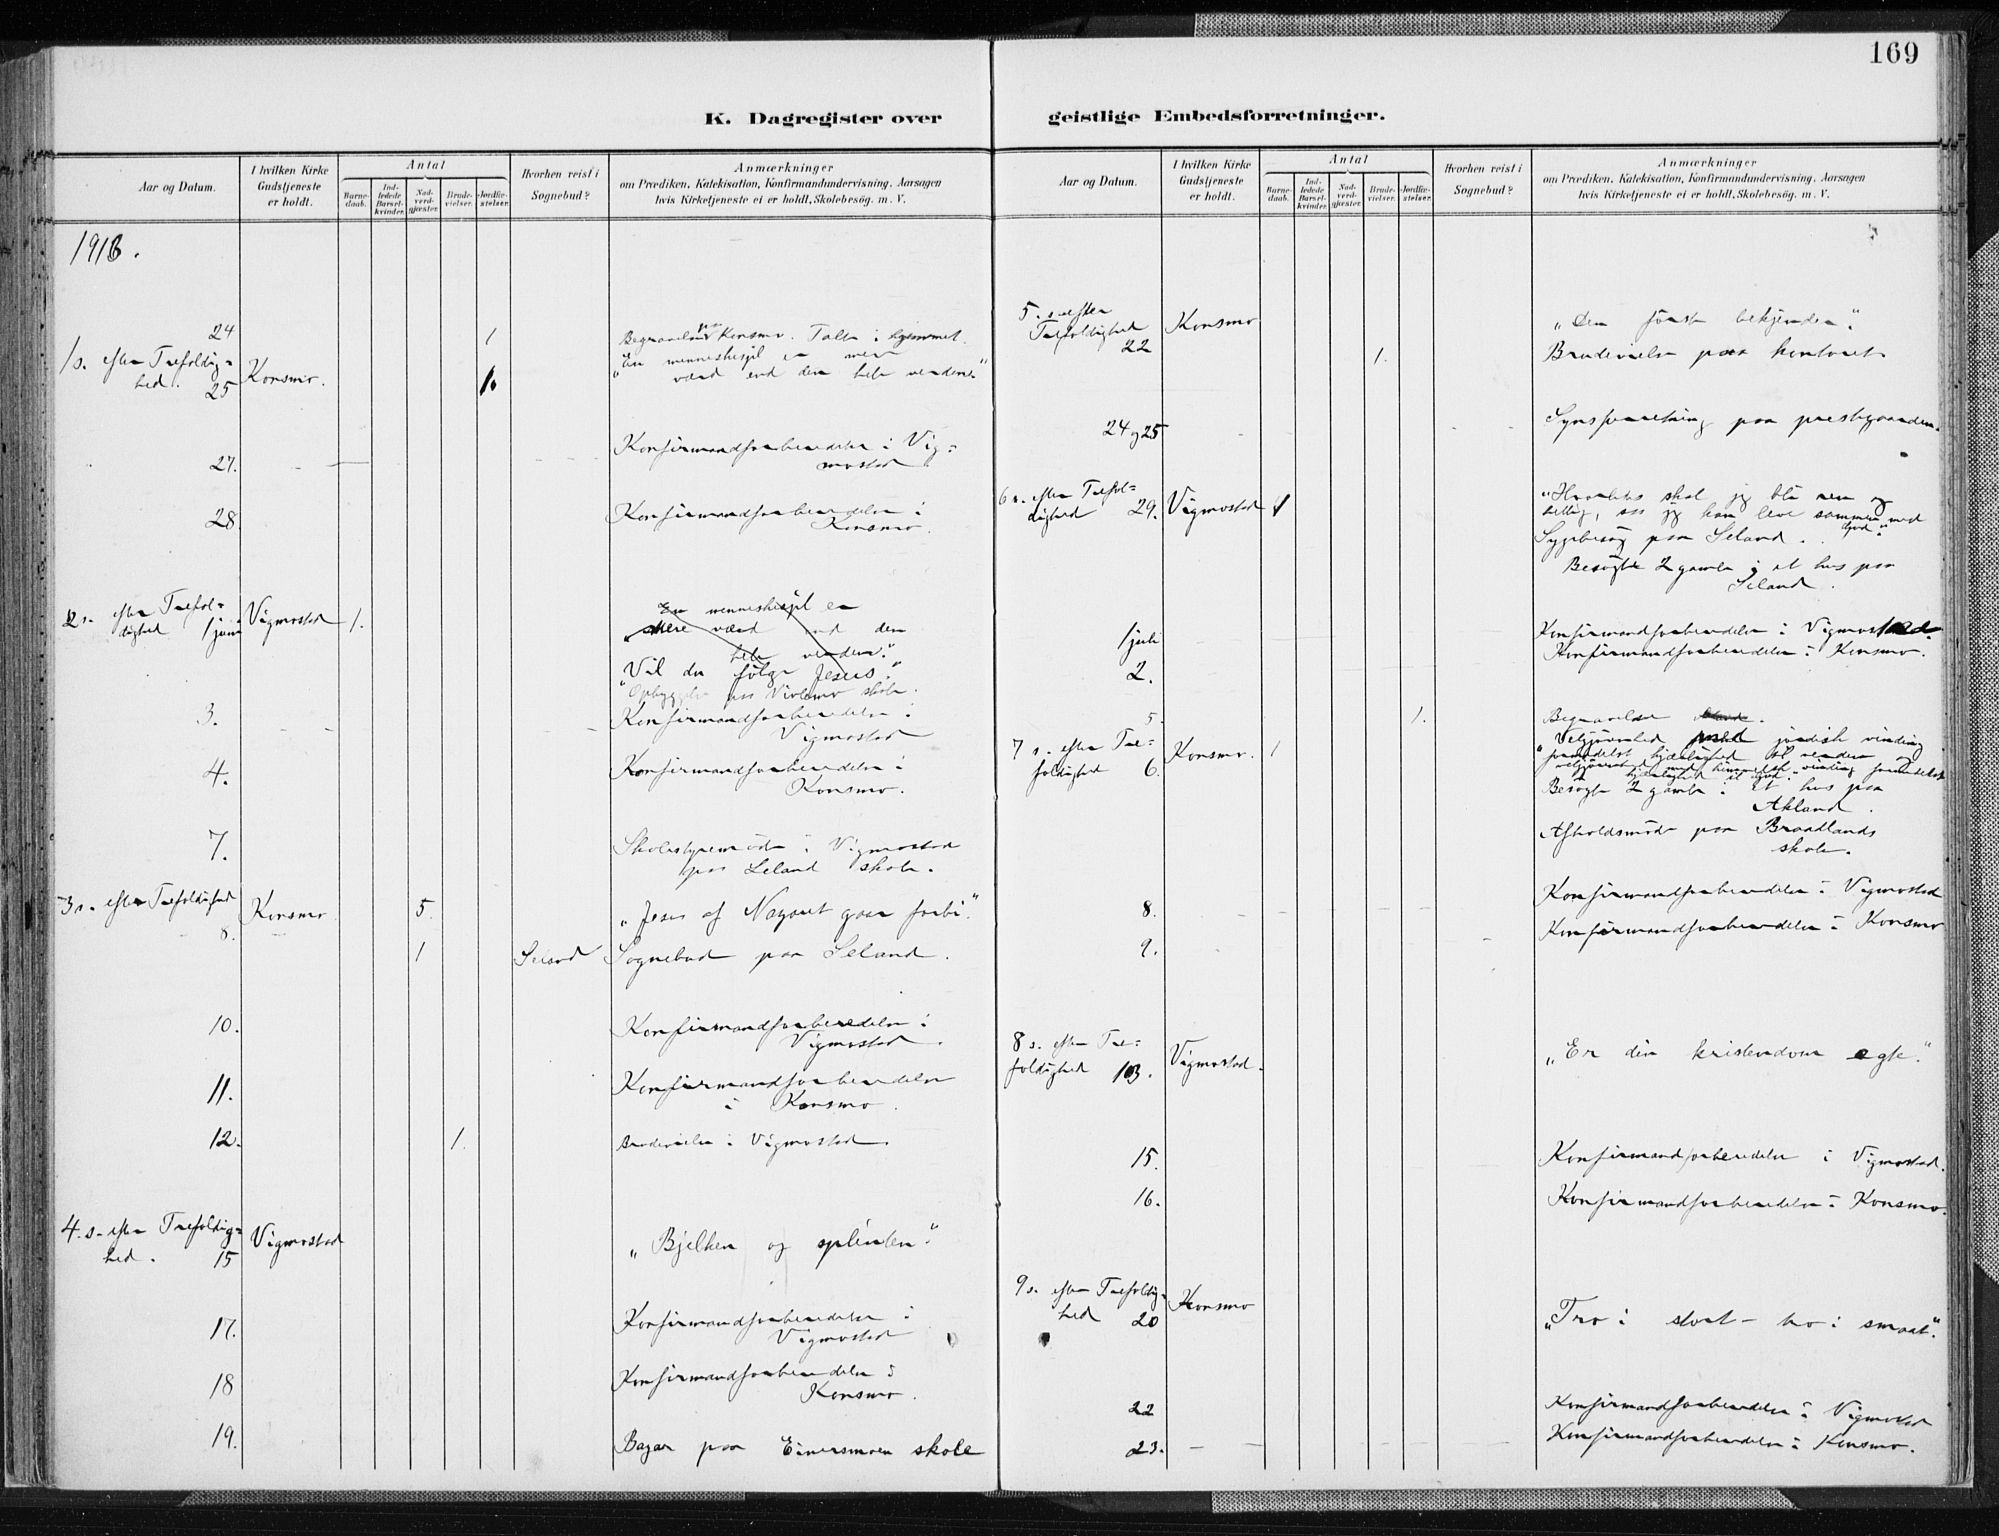 169
K. Dagregister over
geistlige Embedsforretninger.
Aar og Datum.
I hvilken Kirke
Gudstjeneste
er holdt.
Antal
Barne-
daab.
Ind-
ledede
Barsel-
kvinder.
Nad-
verd-
gjæster.
Brude-
vielser.
Jordfæ-
stelser.
Hvorhen reist i
Sognebud?
Anmærkninger
om Prædiken, Katekisation, Konfirmandundervisning. Aarsagen
hvis Kirketjeneste ei er holdt, Skolebesøg. m. V.
1913.
24 1 Begravelse paa Konsmo. Talte i hjemmet.
1 s. efter Trefoldig=
hed. 25 Konsmo. 1. "En menneskesjel er mer
værd end den hele verden."
27. Konfirmandforberedelse i Vig=
mostad.
28. Konfirmandforberedelse i
Konsmo.
2 s. efter Trefol=
dighed 1 juni Vigmostad 1. En menneskesjel er
mere værd end den
hele verden."
"Vil du følge Jesus."
Opbyggelse paa skole.
3. Konfirmandforberedelse i
Vigmostad
4. Konfirmandforberedelse i
Konsmo.
7. Skolestyremöde i Vigmostad
paa Leland skole.
3 s. efter Trefoldighed
8. Konsmo 5. "Jesus af Nazaret gaar forbi."
1 Seland Sognebud paa Seland.
10. Konfirmandforberedelse i
Vigmostad.
11. Konfirmandforberedelse
i Konsmo.
12. 1. Brudevielse i Vigmostad.
4. s. efter Trefoldig=
hed. 15 Vigmostad "Bjelken og splinten".
17. Konfirmandforberedelse i
Vigmostad
18 Konfirmandforberedelse i
Konsmo.
19. Bazar paa Eimersmoen skole
Aar og Datum.
I hvilken Kirke
Gudstjeneste
er holdt.
Antal
Barne-
daab.
Ind-
ledede
Barsel-
kvinder.
Nad-
verd-
gjæster.
Brude-
vielser.
Jordfæ-
stelser.
Hvorhen reist i
Sognebud?
Anmærkninger
om Prædiken, Katekisation, Konfirmandundervisning. Aarsagen
hvis Kirketjeneste ei er holdt, Skolebesøg. m. V.
5. s. efter
Trefoldighed
22 Konsmo "Den første bekjender".
1. Brudevielse paa kontoret
24 og 25 Synsforretning paa prestegaarden.
6 s. efter Trefol=
dighed 29. Vigmostad 1 "Hvorledes skal jeg bli ren og
hellig, saa jeg kan leve sammen med
Gud."
Sygebesøg paa Seland.
Besøgte 2 gamle i et hus paa
Seland.
1 juli Konfirmandforberedelse i Vigmostad.
2. Konfirmandforberedelse i Konsmo.
5. 1. Begravelse
7 s. efter Tre=
foldighed 6. Konsmo. 1 "Veljørenhed med jordisk vinding
kjærlighet til verden og
med himmelsk vinding
kjærlighet til Gud."
Besøgte 2 gamle i et hus paa
Akland.
Afholdsmøde paa Braadlands
skole.
8. Konfirmandforberedelse i Vigmostad
9. Konfirmandforberedelse i Konsmo
8 s. efter Tre=
foldighed 13. Vigmostad. "Er din kristendom egte."
15. Konfirmandforberedelse i Vigmostad.
16. Konfirmandforberedelse i Konsmo.
9 s. efter Trefoldig=
hed 20 Konsmo "Tro i stort – tro i smaat".
22 Konfirmandforberedelse i Vigmostad
23. Konfirmandforberedelse i Konsmo.